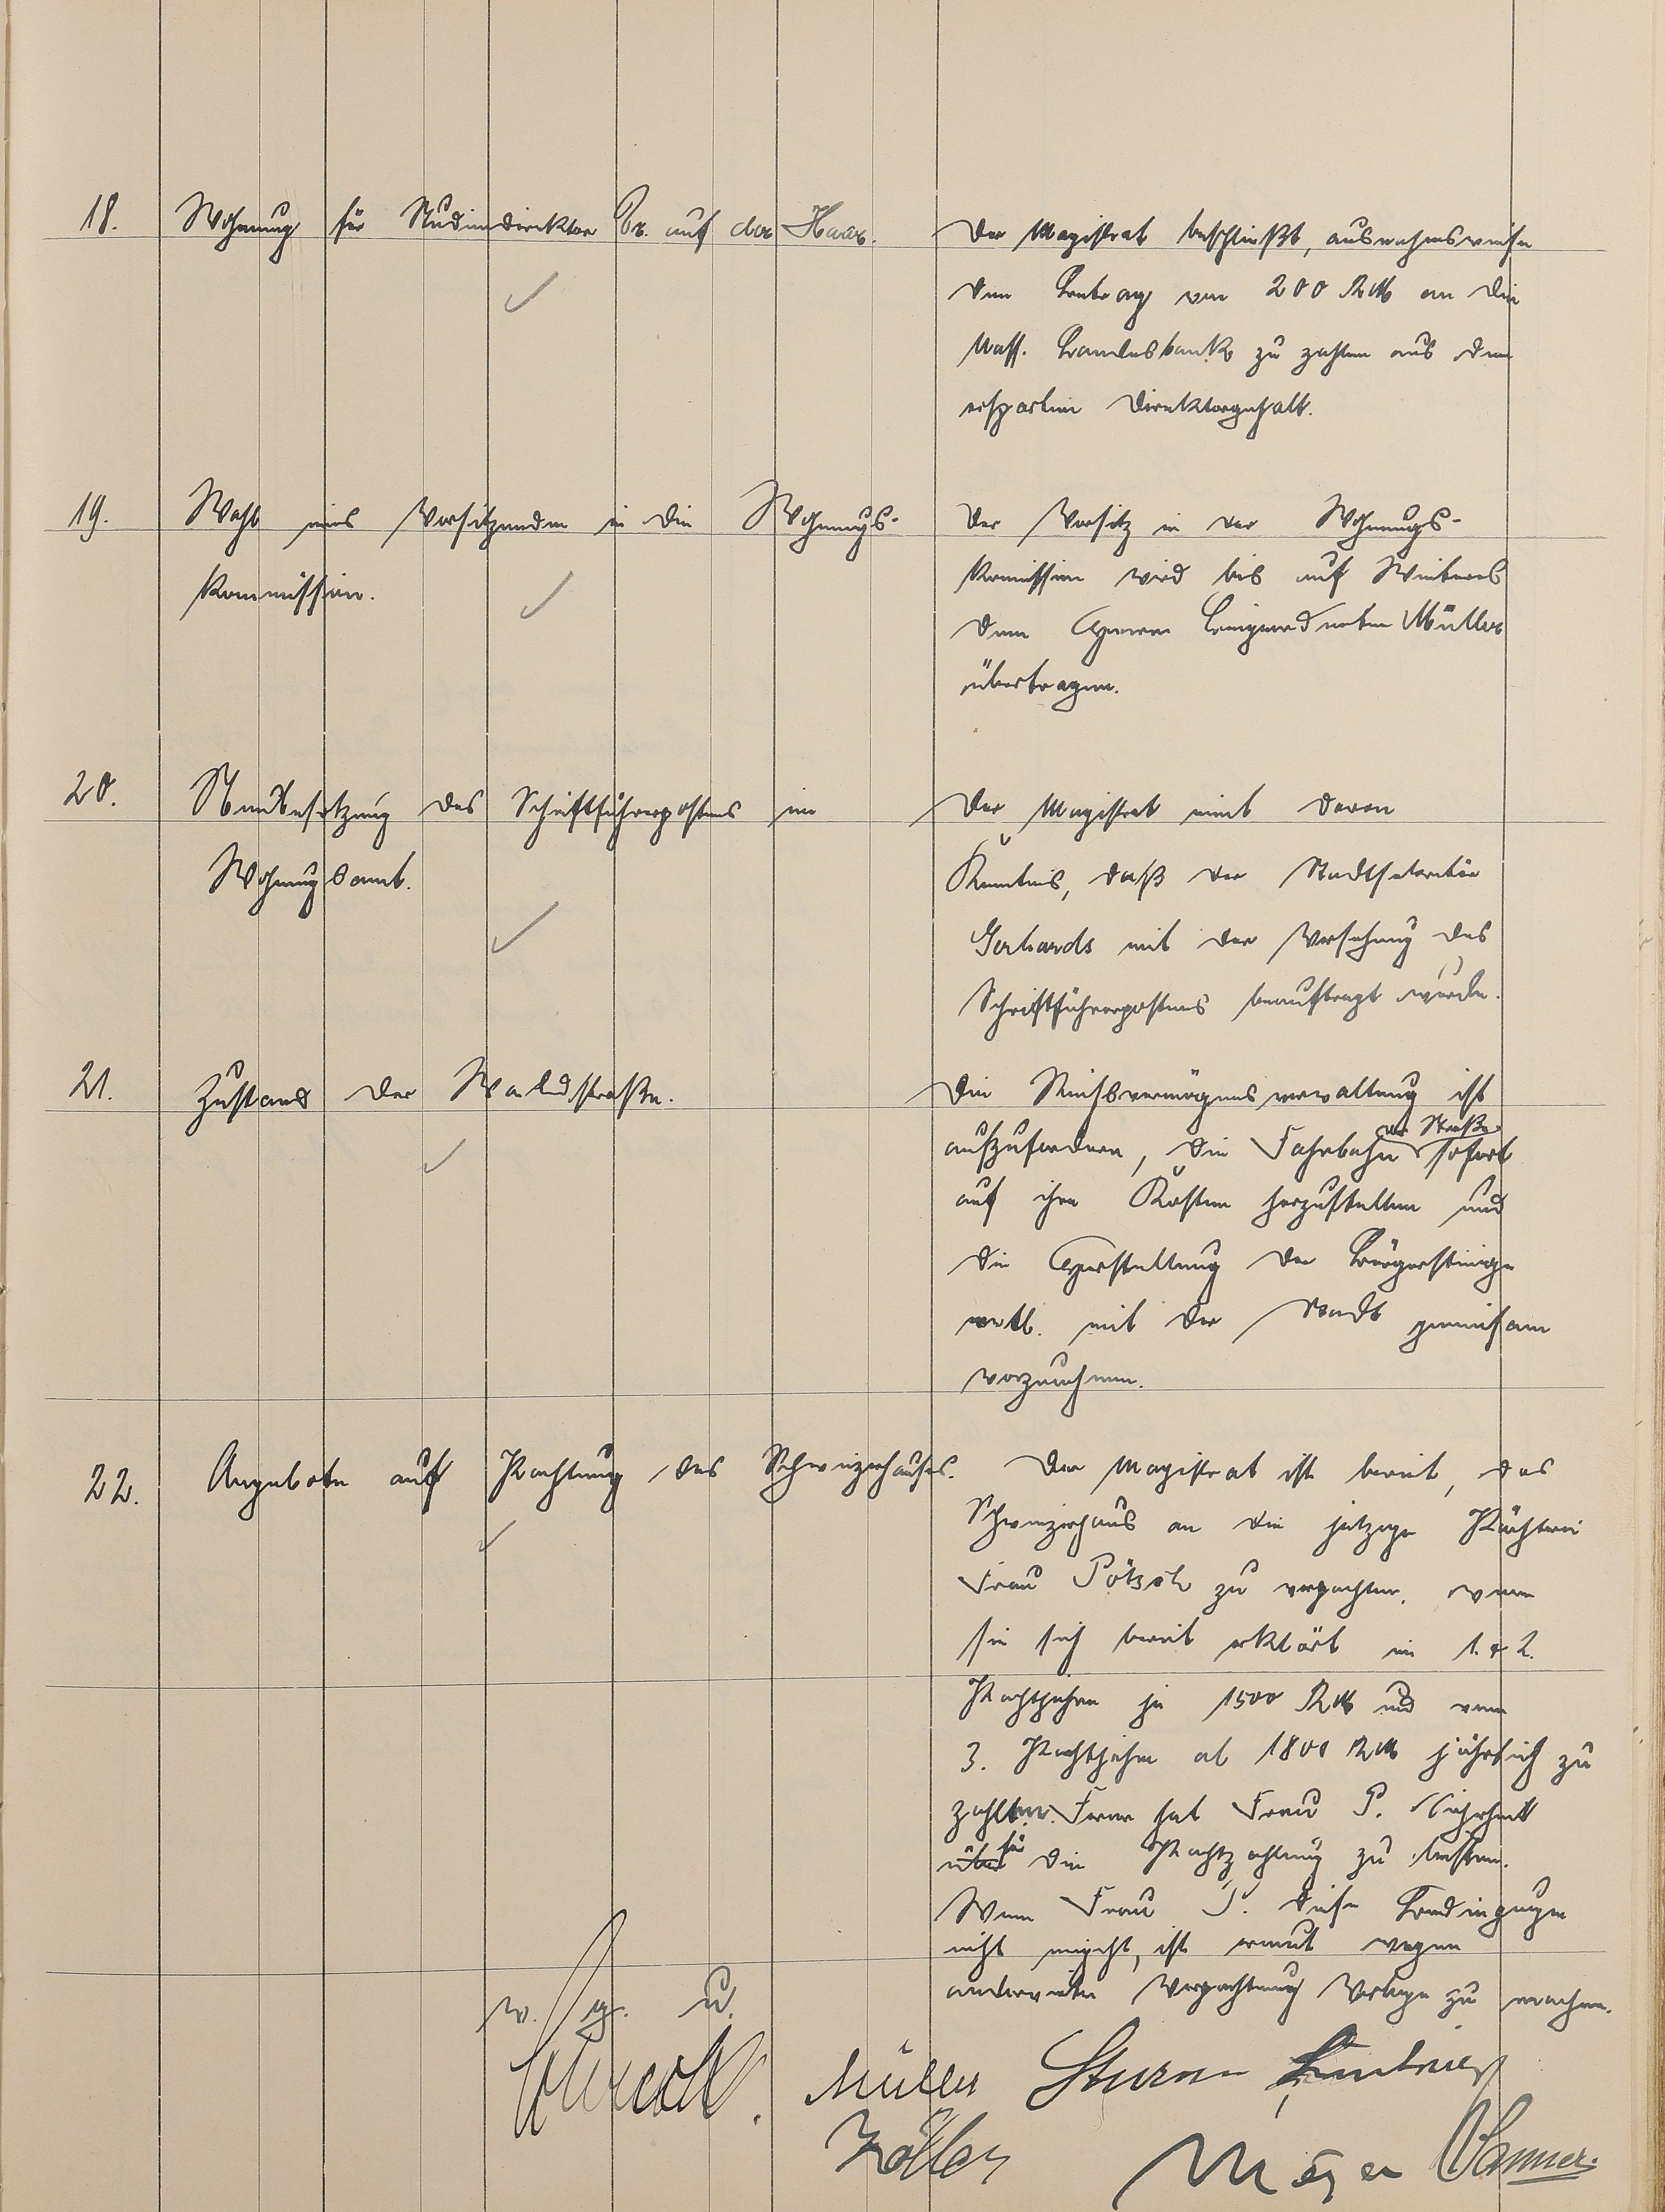 18. Wohnung für Studiendirektor Dr. auf der Haar.
Der Magistrat beschließt, ausnahmsweise
den Betrag von 200 RM an die
Nass. Landesbank zu zahlen aus dem
ersparten Direktorgehalt.
19. Wahl eines Vorsitzenden in die Wohnungs-
Kommission.
Der Vorsitz in der Wohnungs-
kommission wird bis auf Weiteres
dem Herrn Beigeordneten Müller
übertragen.
20. Neubesetzung des Schriftführerpostens im
Wohnungsamt.
Der Magistrat nimt davon
Kenntnis, daß der Stadtsekretär
Gerhards mit der Versehung des
Schriftführerpostens beauftragt wurde.
21. Zustand der Waldstraße.
Die Reichsvermögensverwaltung ist
aufzufordern, die Fahrbahn der Straße sofort
auf ihre Kosten herzustellen und
die Herstellung der Bürgersteige
evtl. mit der Stadt gemeinsam
vorzunehmen.
22. Angebote auf Pachtung des Schweizerhauses.
Der Magistrat ist bereit, das
Schweizerhaus an die jetzige Pächterin
Frau Pötsch zu verpachten, wenn
sie sich bereit erklärt im 1. & 2.
Pachtjahre je 1500 RM und vom
3. Pachtjahre ab 1800 RM jährlich zu
zahlen. Ferner hat Frau P. Sicherheit
über für die Pachtzahlung zu leisten.
Wenn Frau P. diese Bedingungen
nicht eingeht, ist erneut wegen
anderweiter Verpachtung Vorlage zu machen.
v. g. u.
Müller Sturm
Zöller Meyer Wanner.